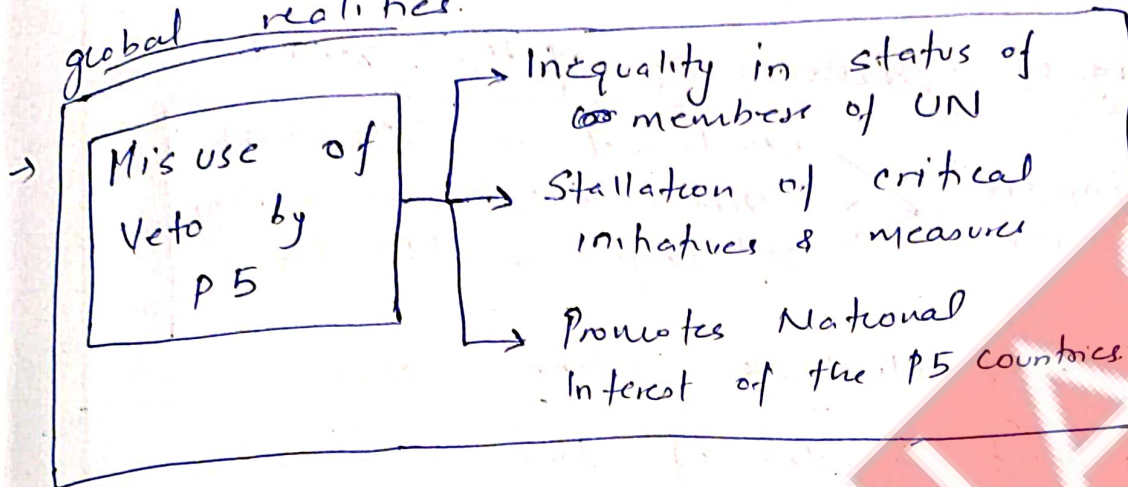 global realities.
→ Misuse of
Veto by
P5
→ Inequality in status of
members of UN
→ Stallation of critical
initiatives & measures
→ Promotes National
Interest of the P5 countries.
IA